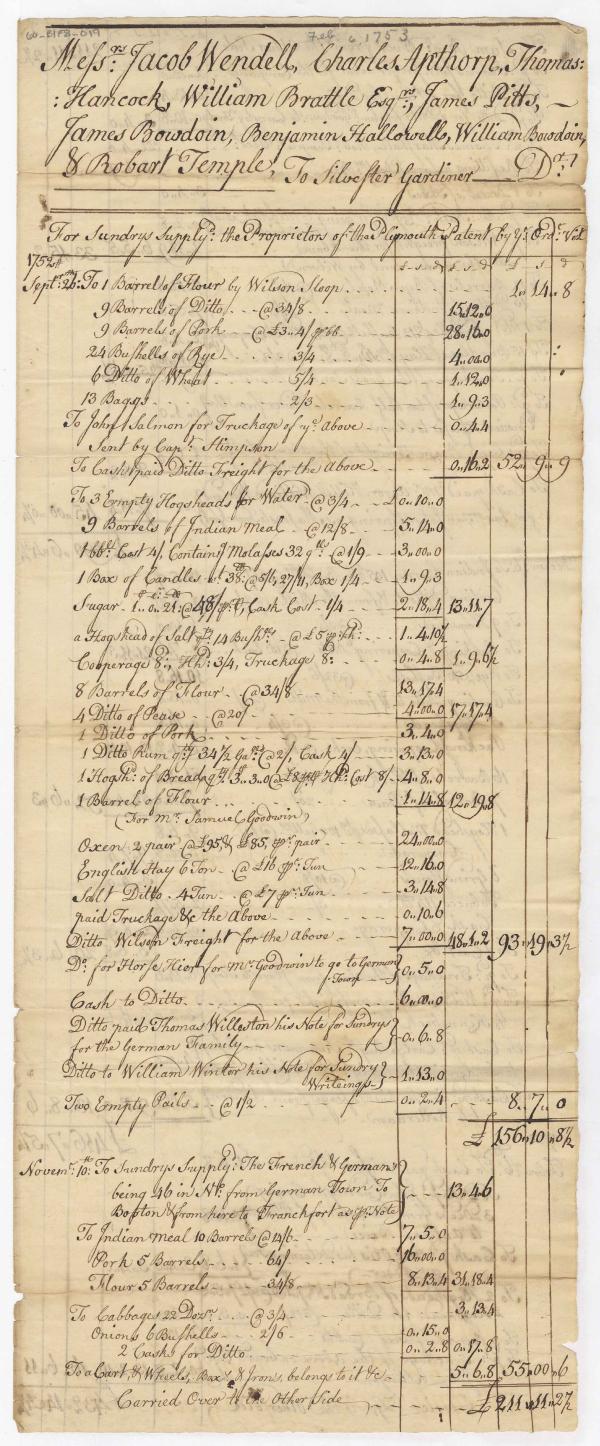 60-EIFB-019
Feb. 6, 1753
Messrs. Jacob Wendell, Charles Apthorp, Thomas:
: Hancock, William Brattle Esqrs; James Pitts, —
James Bowdoin, Benjamin Hallowells, William Bowdoin,
& Robart Temple, To Silvester Gardiner Dr.
For Sundrys Supplyd: the Proprietors of the Plymouth Patent by ye. Ordr. Vizt.
1752
£ s d £ s d £ s d
Septr: 26: To 1 Barrel of Flour by Wilson Sloop 1 .. 14 .. 8
9 Barrels of Ditto @ 34/8 15.12.0
9 Barrels of Pork @ £3..4/ pr bb 28.16.0
24 Bushells of Rye 3/4 4..00.0
6 Ditto of Wheat 5/4 1..12.0
13 Baggs 2/3 1..9.3
To John Salmon for Truckage of ye. above 0..4.4
Sent by Capt. Stimpson
To Cash paid Ditto Freight for the Above 0..16.2 52 .. 9 .. 9
To 3 Empty Hogsheads for Water @ 3/4 £0..10..0
9 Barrels of Indian Meal @ 12/8 5..14..0
1 bbl. Cost 4/. Containg Molasses 32 gls @ 1/9 3..00..0
1 Box of Candles wt. 38: @ 5/6, 27/11, Box 1/4 1..9..3
Sugar 1..0..21: @ 48/ pr Ct, Cask Cost 1/4 2..18..4 13..11..7
a Hogshead of Salt qt 14 Bushs. @ £5 pr hh: 1..4.10½
Cooperage 8d:, Hhd: 3/4, Truckage 8d: 0..4..8 1..9..6½
8 Barrels of Flour @ 34/8 13..17.4
4 Ditto of Pease @ 20/ 4..00..0 17..17.4
1 Ditto of Pork 3..4..0
1 Ditto Rum qt. 34½ Gas. @ 2/, Cask 4/ 3..13..0
1 Hogshd: of Bread qt. 3..3..0 @ Hhd: Cost 8/ 4..8..0
1 Barrel of Flour 1..14..8 12..19..8
(For Mr. Samuel Goodwin)
Oxen 2 pair @ £95, & £85, pr. pair 24..00..0
English Hay 6 Ton @ £16 pr. Tun 12..16..0
Salt Ditto 4 Tun @ £7 pr. Tun 3..14.8
paid Truckage &c the Above 0..10..6
Ditto Wilson Freight for the Above 7..00..0 48..1..2 93 .. 19 .. 3½
Do. for Horse Hier for Mr. Goodwin to go to German
Town 0..5..0
Cash to Ditto 6..00..0
Ditto paid Thomas Willeston his Note for Sundrys
for the German Family 0..6..8
Ditto to William Winter his Note for Sundry
Writeings 1..13..0
Two Empty Pails @ 1/2 0..2..4 8 .. 7 .. 0
£ 156 .. 10 .. 8½
Novemr: 10th: To Sundrys Supplyd: The French & Germans
being 46 in No. from German Town To
Boston & from hire to Franckfort as pr. Note 13..4..6
To Indian meal 10 Barrels @ 14/6 7..5..0
Pork 5 Barrels 64/ 16..00..0
Flour 5 Barrels 34/8 8..13..4 31..18..4
To Cabbages 22 Dozn. @ 3/4 3..13.4
Onions 6 Bushells 2/6 0..15..0
2 Casks for Ditto 0..2..8 0..17..8
To a Cart, & Wheels, Box & Irons, belongs to it &c 5..6..8 55..00..6
Carried Over to the Other Side £ 211..11..2½